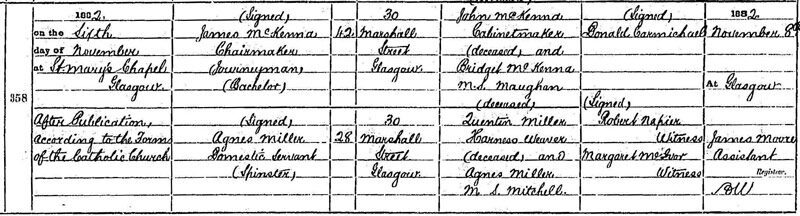 358
1882.
on the Fifth
day of November
at St. Mary's Chapel
Glasgow.
After Publication,
according to the Forms
of the Catholic Church
(Signed)
James McKenna
Chairmaker
(Journeyman)
(Bachelor)
(Signed)
Agnes Miller
Domestic Servant
(Spinster)
42
28
30
Marshall
Street
Glasgow
30
Marshall
Street
Glasgow
John McKenna
Cabinetmaker
(deceased) and
Bridget McKenna
M.S. Maughan
(deceased)
Quentin Miller
Harness Weaver
(deceased) and
Agnes Miller
M.S. Mitchell.
(Signed)
Donald Carmichael
(Signed)
Robert Napier
Witness
Margaret
Witness
1882.
November 8th
At Glasgow
James Moore
Assistant
Registrar.